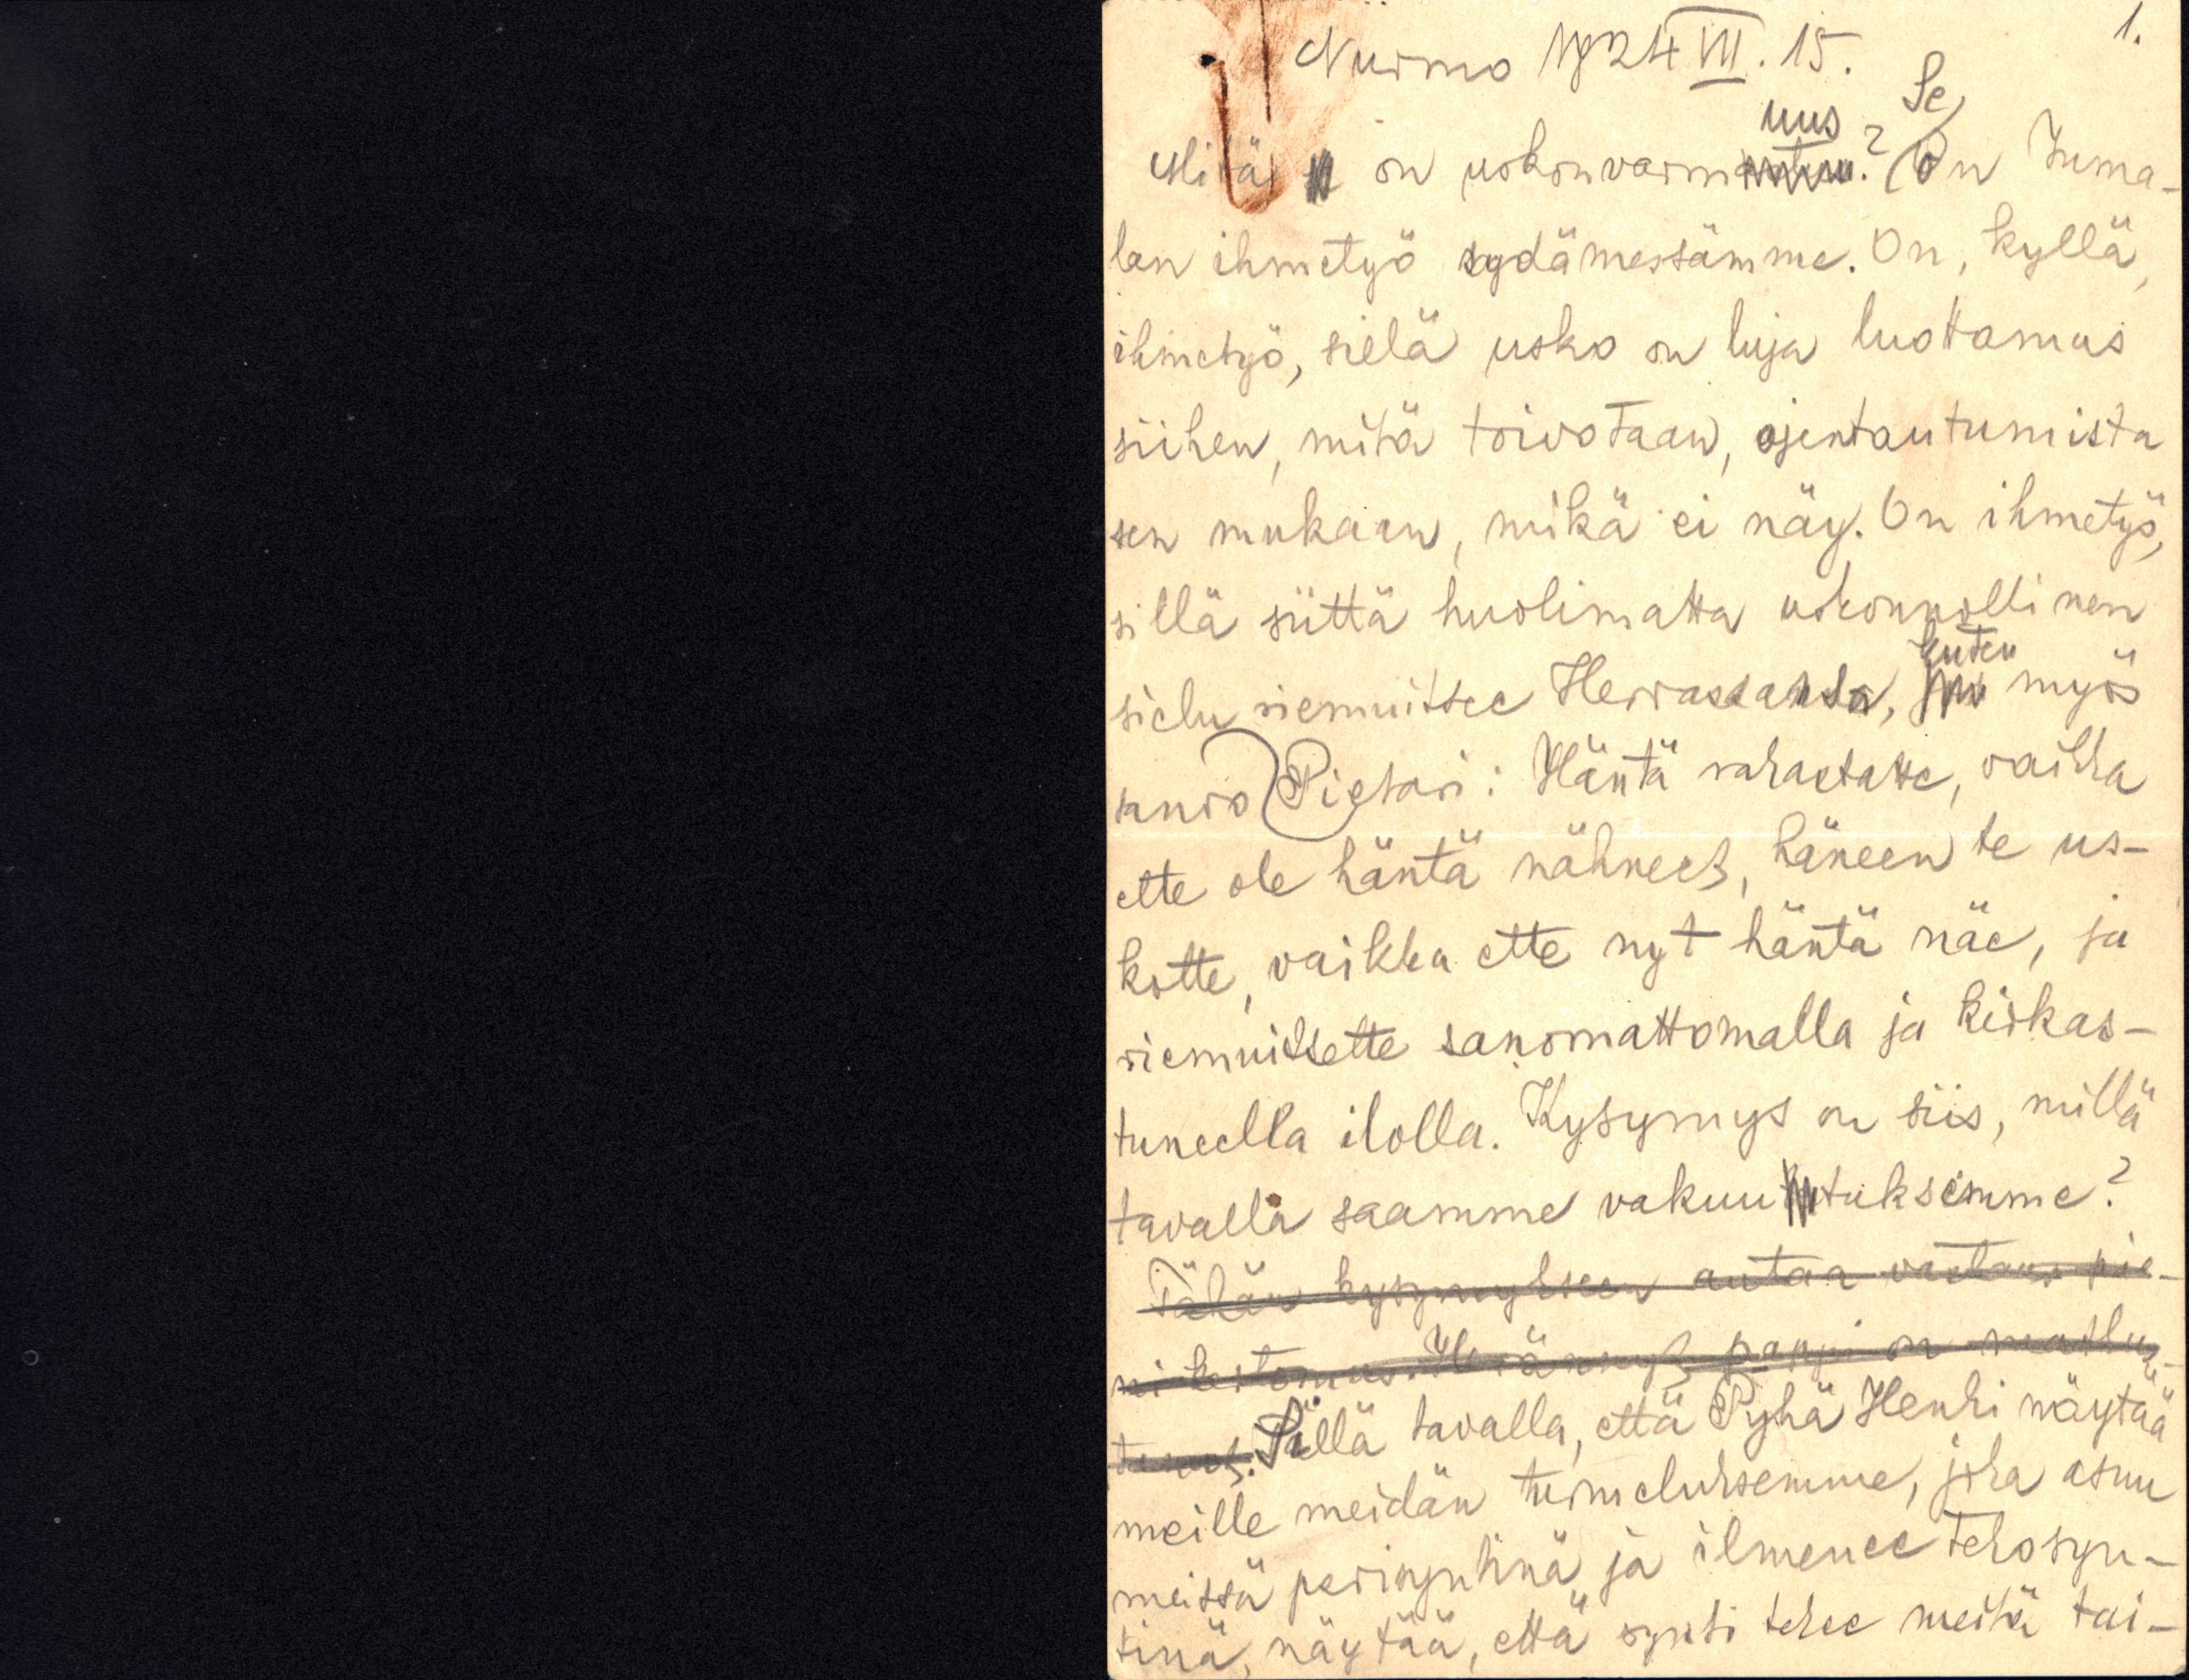 1.
Nurmo 1924 VII. 15.
uus Se
Mitä on uskonvarm ? On Juma-
lan ihmetyö sydämessämme. On, kyllä,
ihmetyö, sielä usko on luja luottamus
siihen, mitä toivotaan, ojentautumista
sen mukaan, mikä ei näy. On ihmetyö,
sillä siittä huolimatta uskonnollinen
kuten
sielu riemuitsee Herrassansa, myös
sanoo Pietari: Häntä rahastatte, vaikka
ette ole häntä nähneet, häneen te us-
kotte, vaikka ette nyt häntä näe, ja
riemuitsette sanomattomalla ja kirkas-
tuneella ilolla. Kysymys on siis, millä
tavalla saamme vakuutuksemme?
Tähän kysymykseen antaa vastaus pie-
ni kertomus. Herännyt pappi on matkus-
Sillä tavalla, että Pyhä Henki näytää
meille meidän turmeluksemme, joka asuu
meissä perisyntinä ja ilmenee tekosyn-
tinä, näytää, että synti tekee meitä tai-